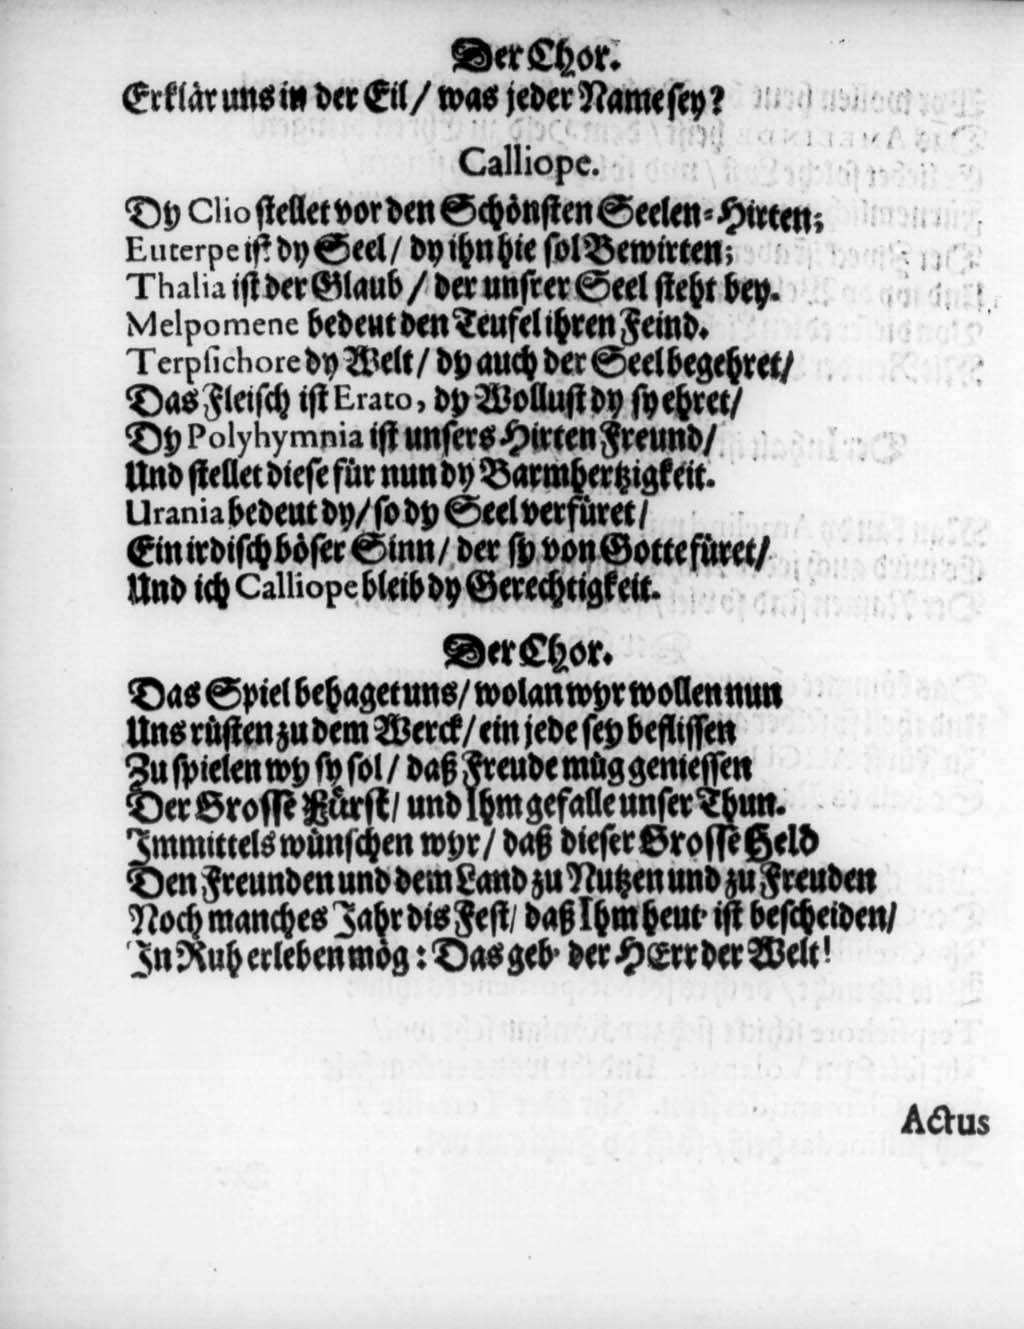 Der Chor.
Erklär uns in der Eil/ was jeder Name sey?
Calliope.
Dy Clio stellet vor den Schönsten Seelen-Hirten;
Euterpe ist dy Seel/ dy ihn hie sol Bewirten;
Thalia ist der Glaub/ der unsrer Seel steht bey.
Melpomene bedeut den Teufel ihren Feind.
Terpsichore dy Welt/ dy auch der Seel begehret/
Das Fleisch ist Erato, dy Wollust dy sy ehret/
Dy Polyhymnia ist unsers Hirten Freund/
Und stellet diese für nun dy Barmhertzigkeit.
Urania bedeut dy/ so dy Seel verfüret/
Ein irdisch böser Sinn/ der sy von Gotte füret/
Und ich Calliope bleib dy Gerechtigkeit.
Der Chor.
Das Spiel behaget uns/ wolan wyr wollen nun
Uns rüsten zu dem Werck/ ein jede sey beflissen
Zu spielen wy sy sol/ daß Freude müg geniessen
Der Grosse Fürst/ und Ihm gefalle unser Thun.
Immittels wünschen wyr/ daß dieser Grosse Held
Den Freunden und dem Land zu Nutzen und zu Freuden
Noch manches Jahr dis Fest/ daß Ihm heut' ist bescheiden/
In Ruh erleben mög: Das geb' der HErr der Welt!
Actus